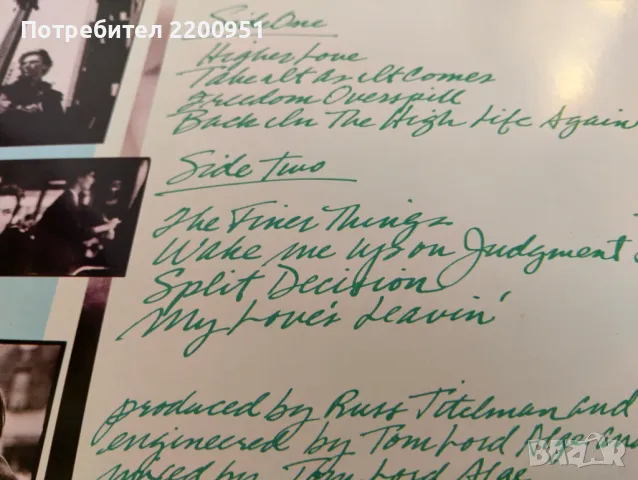 Потребител 2200951
Side One
Higher Love
Take It As It Comes
Freedom Overspill
Back In The High Life Again
Side Two
The Finer Things
Wake me up on Judgment
Split Decision
My Love's Leavin'
produced by Russ Titelman and
engineered by Tom Lord Alge and
mixed by Tom Lord Alge
bazar.bg